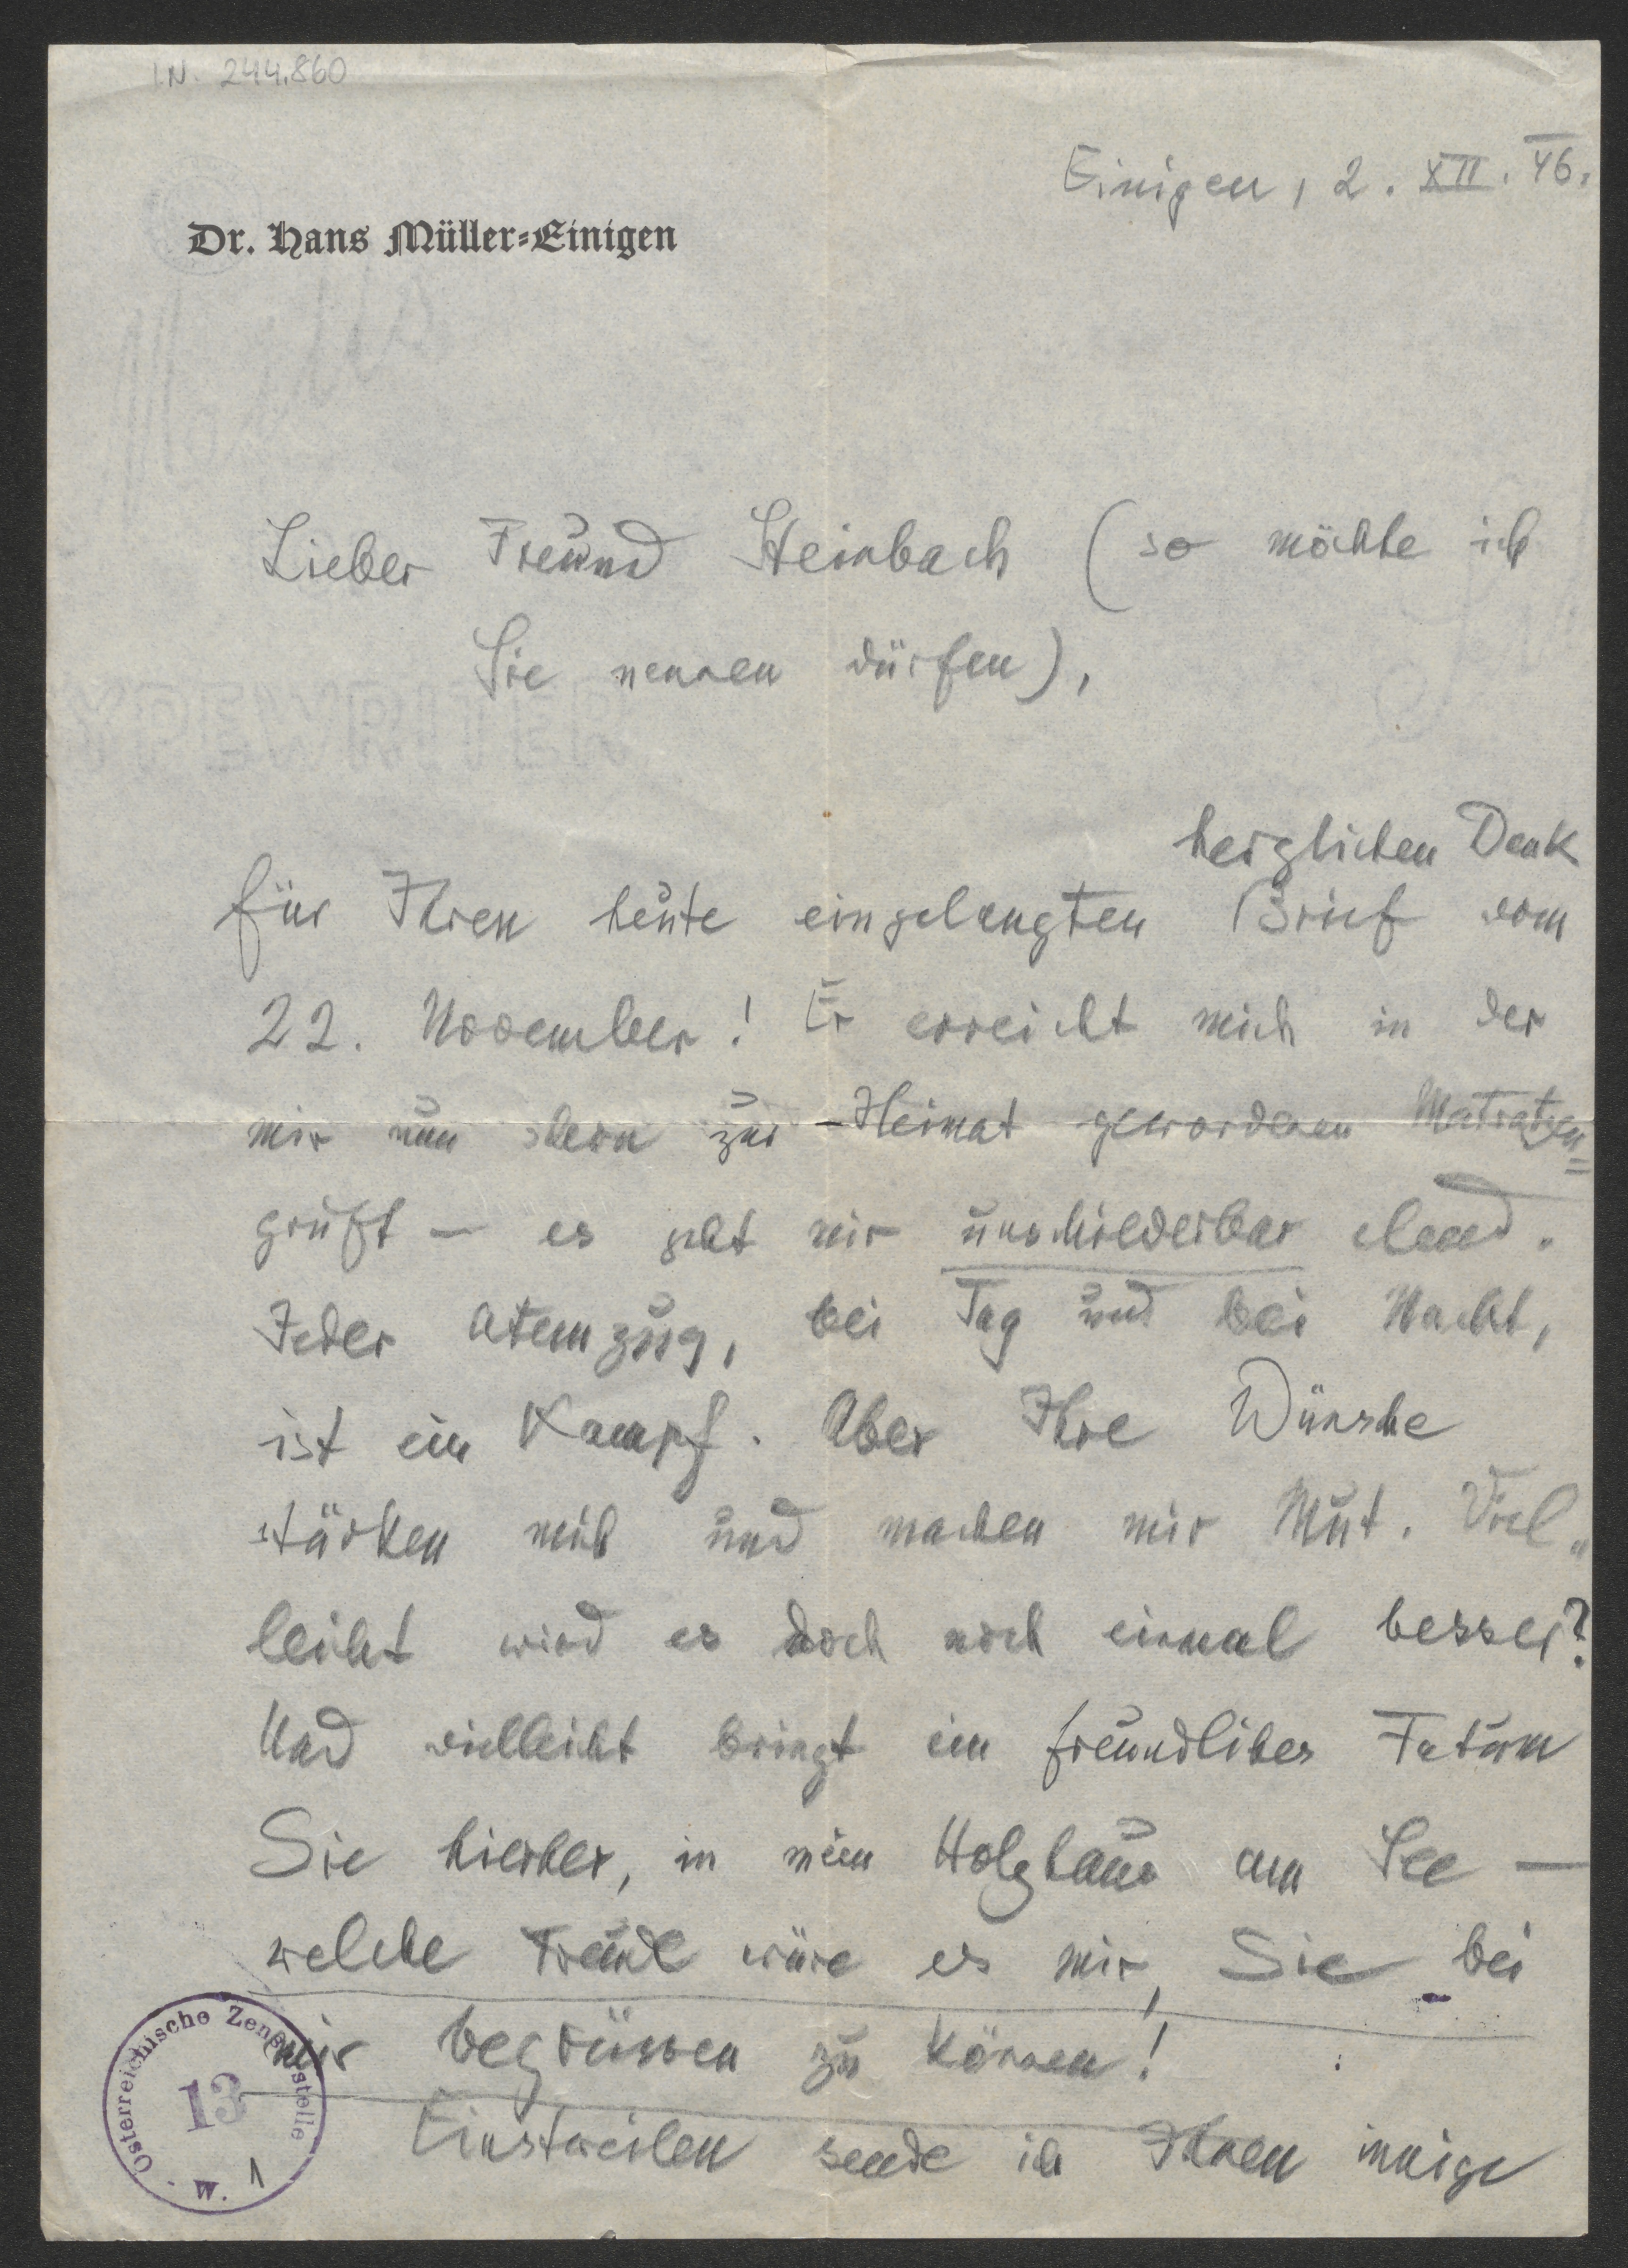 I.N. 244.860
Einigen, 2. XII. 46.
Dr. Hans Müller=Einigen
Lieber Freund Steinbach (so möchte ich
Sie nennen dürfen),
herzlichen Dank
für Ihren heute eingelangten Brief vom
22. November! Er erreicht mich in der
mir nun schon zur Heimat gewordenen Matratzen=
gruft — es geht mir unschilderbar elend.
Jeder Atemzug, bei Tag und bei Nacht,
ist ein Kampf. Aber Ihre Wünsche
stärken mich und machen mir Mut. Viel„
leicht wird es doch noch einmal besser?
Und vielleicht bringt ein freundliches Fatum
Sie hierher, in mein Holzhaus am See —
welche Freude wäre es mir, Sie bei
mir begrüssen zu können!
Einstweilen sende ich Ihnen innige
Österreichische Zensurstelle
13
W. 1